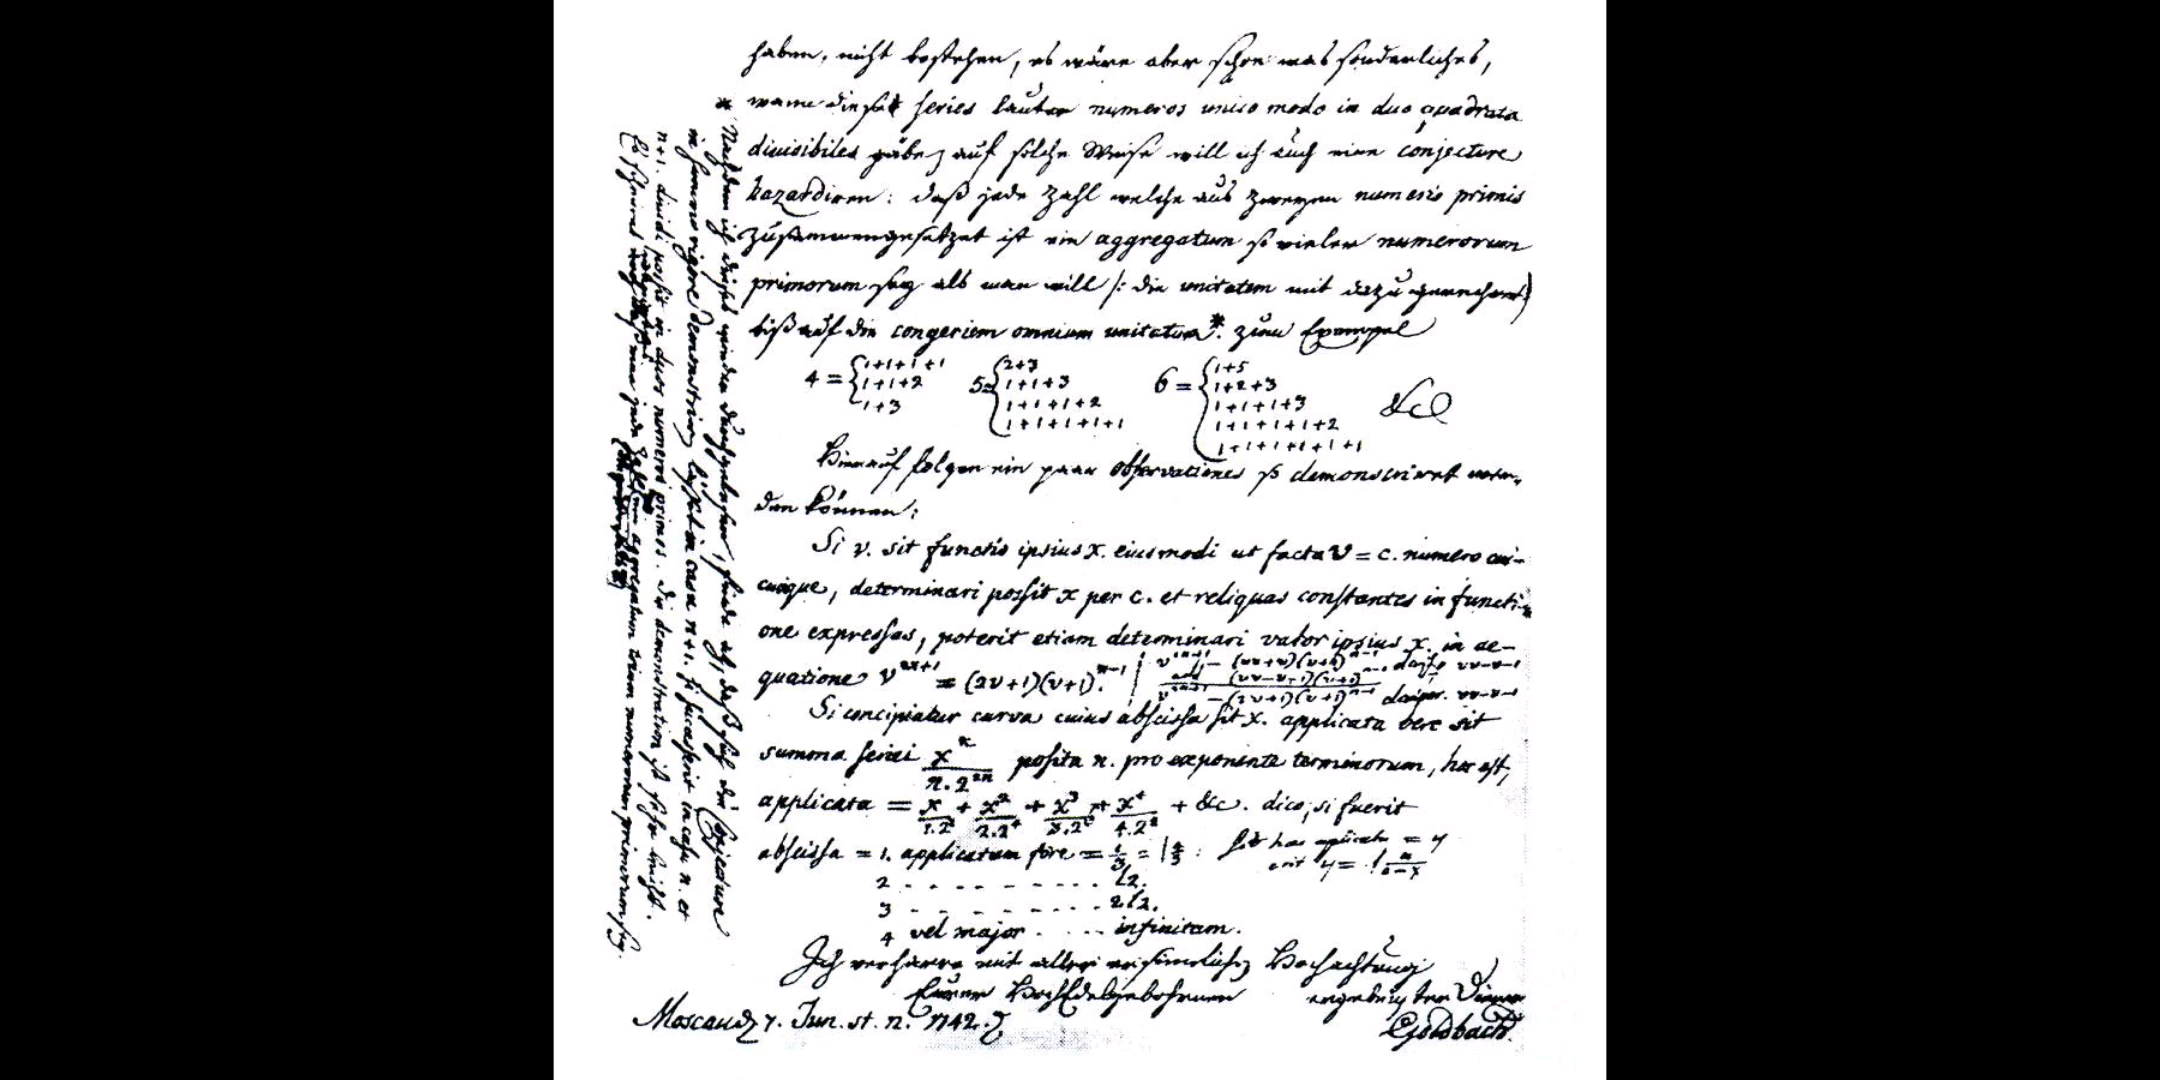 haben, nicht bestehen, es wäre aber schon was sonderliches,
* wann diese series lauter numeros unico modo in duo quadrata
divisibiles gäbe, auf solche Weise will ich auch eine conjecture
hazardiren: daß jede Zahl welche aus zweyen numeris primis
zusammengesetzet ist ein aggregatum so vieler numerorum
primorum sey als man will /: die unitatem mit dazu gerechnet)
biß auf die congeriem omnium unitatum*. zum Exempel
4 = { 1+1+1+1 5 = { 2+3 6 = { 1+5
1+1+2 1+1+3 1+2+3
1+3 1+1+1+2 1+1+1+3 &c
1+1+1+1+1 1+1+1+1+2
1+1+1+1+1+1
Hierauf folgen ein paar observationes so demonstriret wer-
den können:
Si v. sit functio ipsius x. eiusmodi ut facta v = c. numero cui-
cunque, determinari possit x per c. et reliquas constantes in functi-
one expressas, poterit etiam determinari valor ipsius x. in ae-
quatione v^{2n+1} = (2v+1)(v+1)^{n-1}
Si concipiatur curva cuius abscissa sit x. applicata vero sit
summa seriei x^n/(n.2^{2n}) posita n. pro exponente terminorum, hoc est,
applicata = x/1.2² + x²/2.2⁴ + x³/3.2⁶ + x⁴/4.2⁸ + &c. dico, si fuerit
abscissa = 1. applicatam fore = l 4/3 : Sit haec applicata = y
erit y = l 4/(4-x)
2 - - - - - - - - l2.
3 - - - - - - - - 2l2.
4 vel major - - - infinitam.
Ich verharre mit aller ersinnlichen Hochachtung
Eurer HochEdelgebohrnen ergebenster Diener
Moscau d. 7. Jun. st. n. 1742. Goldbach.
* Nachdem ich dieses wieder durchgelesen, finde ich, daß sich die Conjecture
in summo rigore demonstriren lässet in casu n+1. si successerit in casu n. et
n+1. dividi possit in duos numeros primos. Die demonstration ist sehr leicht.
Es scheinet wenigstens, daß eine jede Zahl ein aggregatum trium numerorum primorum sey.